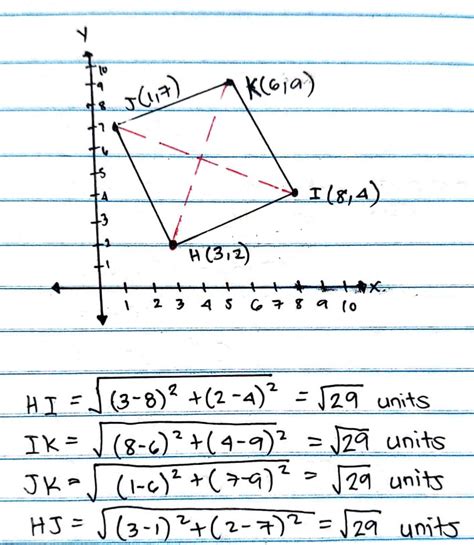 Y
10
9
8
7
6
5
4
3
2
1
J(1,7)
K(6,9)
I(8,4)
H(3,2)
1 2 3 4 5 6 7 8 9 10 X
HI = √(3-8)² + (2-4)² = √29 units
IK = √(8-6)² + (4-9)² = √29 units
JK = √(1-6)² + (7-9)² = √29 units
HJ = √(3-1)² + (2-7)² = √29 units